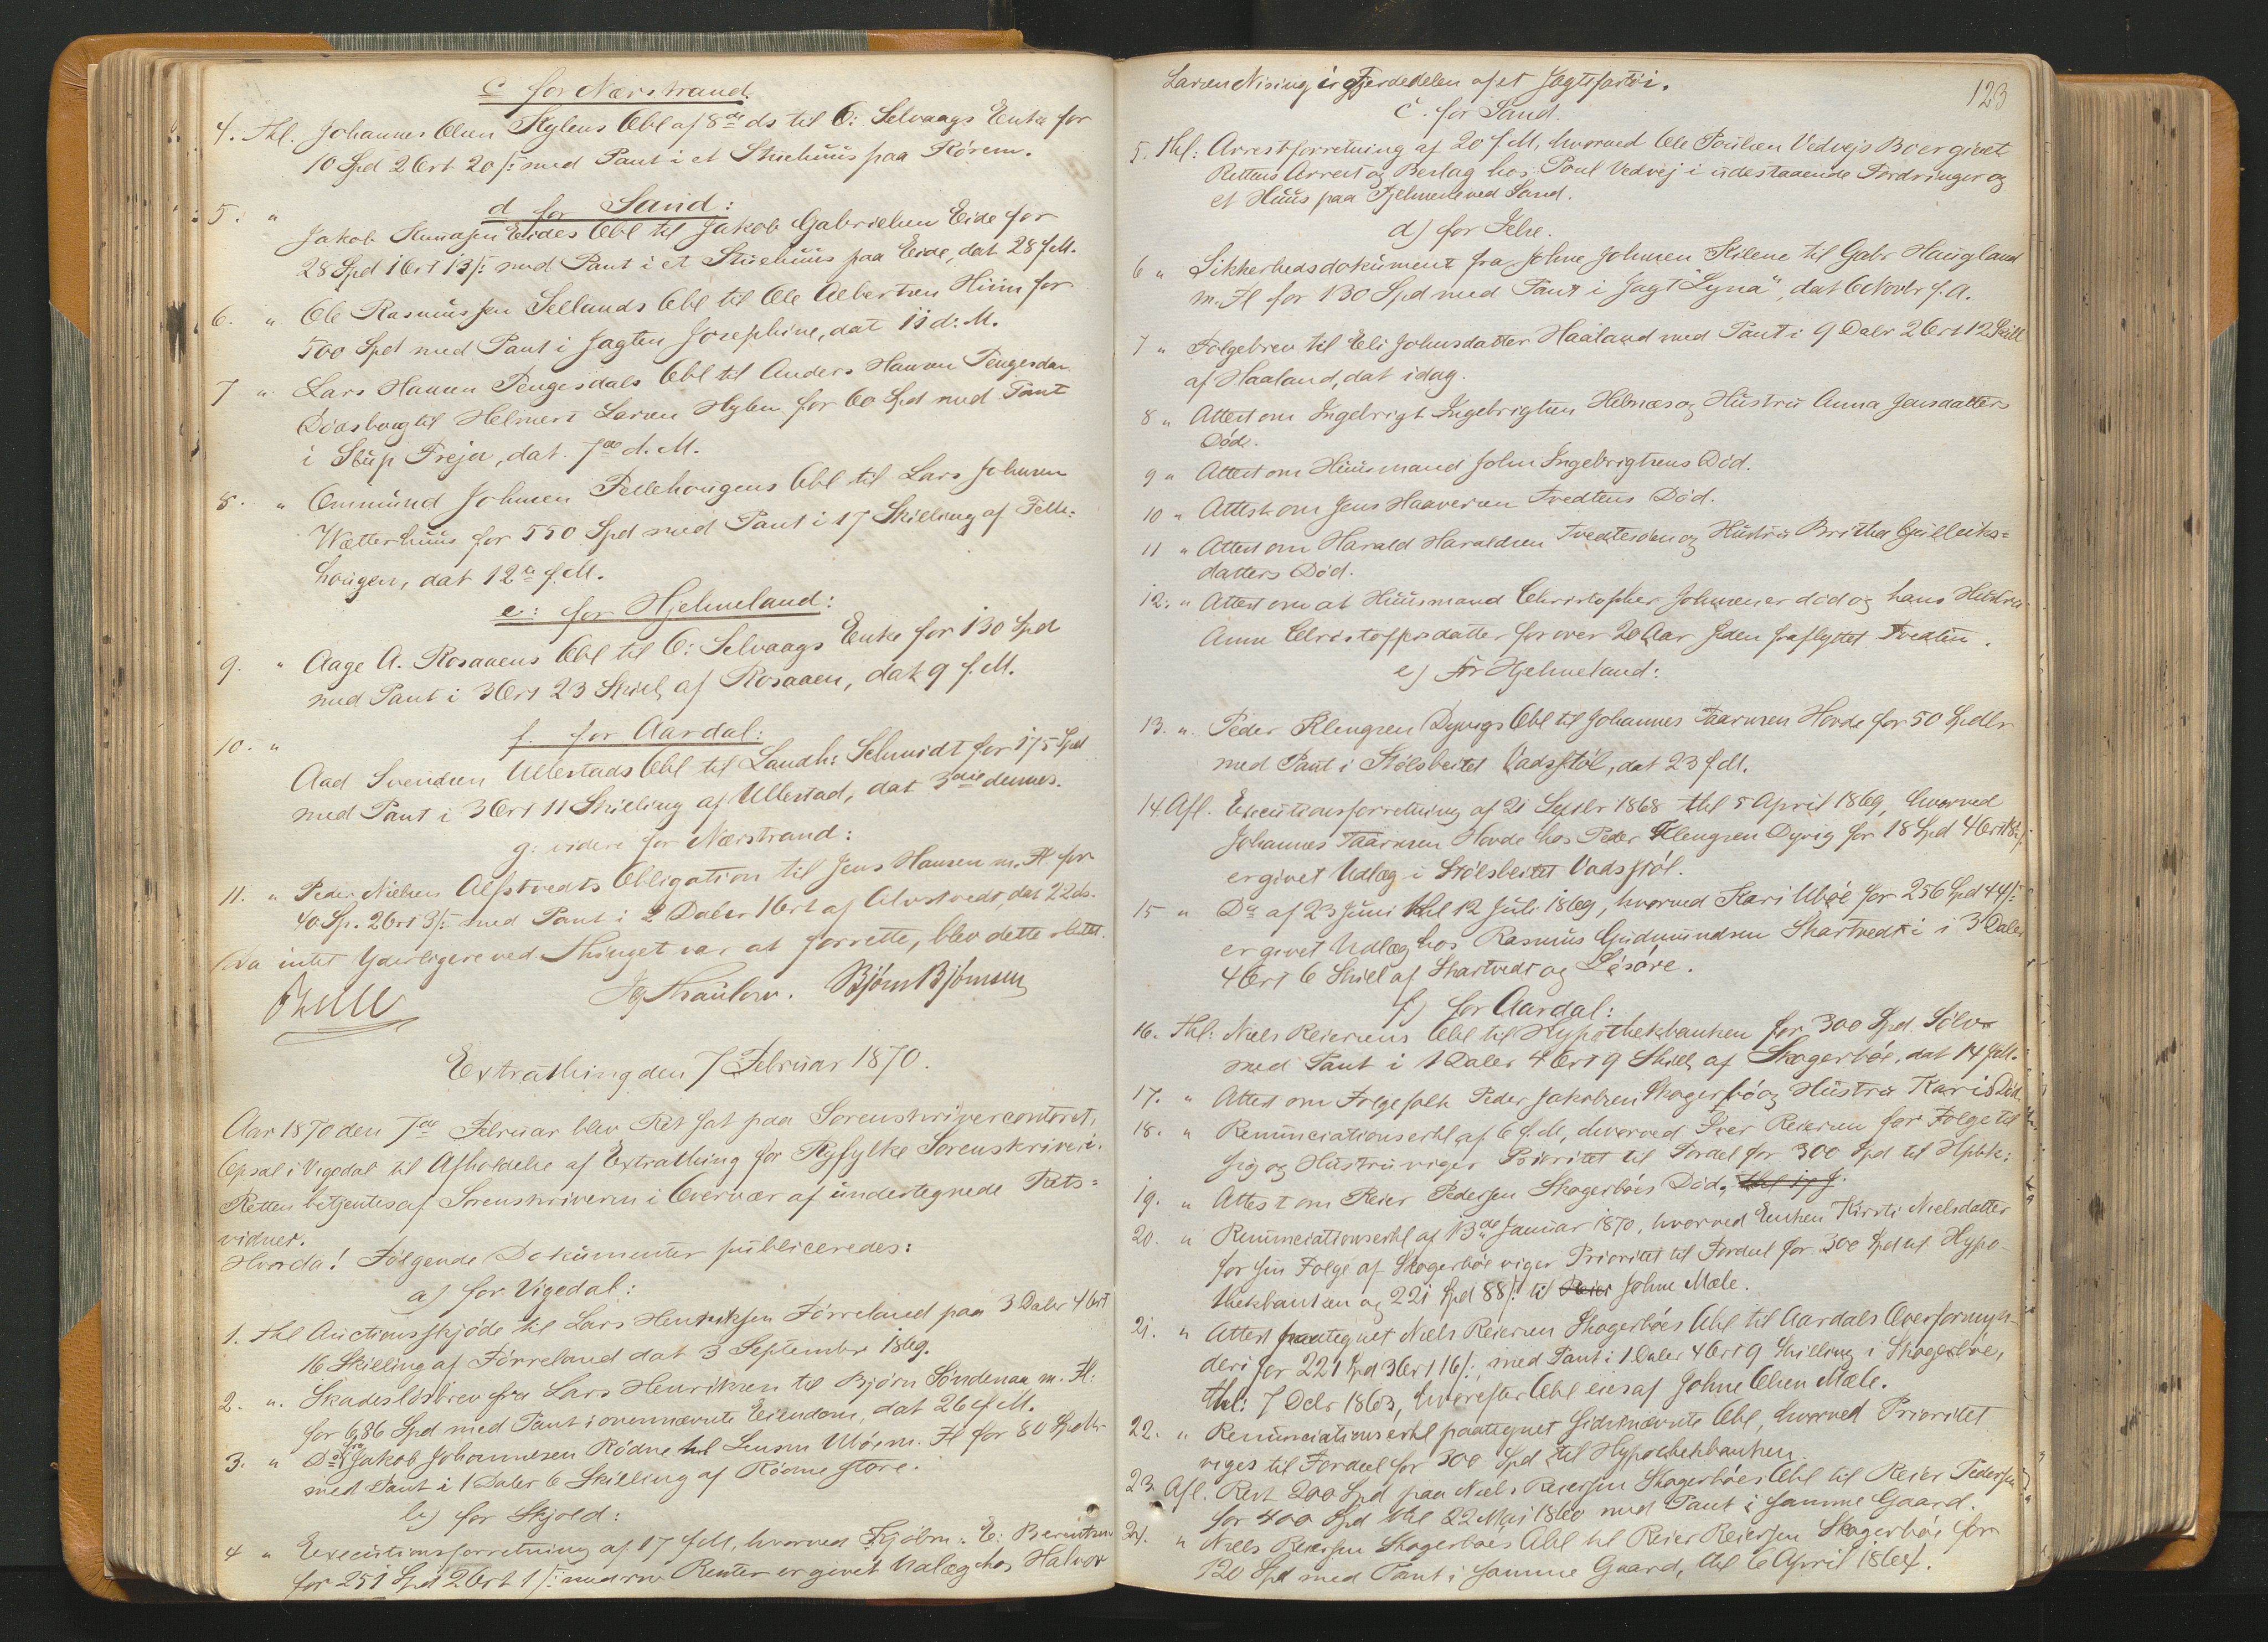 c for Nærstrand.
4. Thl. Johannes Olsen Kylens Obl af 8de ds til O: Selvaags Enke for
10 Spd 2 Ort 20 ſ: med Pant i et Stuehuus paa Rørem.
d for Sand:
5. " Jakob Knudsen Eides Obl til Jakob Gabrielsen Eide for
28 Spd 1 Ort 13 ſ: med Pant i et Stuehuus paa Eide, dat 28 f.M.
6. " Ole Rasmussen Sellands Obl til Ole Albertsen Hiim for
500 Spd med Pant i Jagten Josephine, dat 11 d: M.
7 " Lars Hansen Tengesdals Obl til Anders Hansen Tengesdal
til Helmert Larsen Hylen for 60 Spd med Pant
i Slup Freja, dat. 7de d. M.
8. " Ommund Johnsen Tellehougens Obl til Lars Johnsen
Wætterhuus for 550 Spd med Pant i 17 Skilling af Telle-
hougen, dat 12te f.M.
e: for Hjelmeland:
9. " Aage A. Rosaaens Obl til O: Selvaags Enke for 130 Spd
med Pant i 3 Ort 23 Skill af Rosaaen, dat 9 f.M.
f. for Aardal:
10. " Aad Svendsen Ullestads Obl til Landh: Schmidt for 175 Spd
med Pant i 3 Ort 11 Skilling af Ullestad, dat 3die dennes.
g: videre for Nærstrand:
11. " Peder Nielsen Alfstvedts Obligation til Jens Hansen m. Fl for
40 Sp. 2 Ort 3 ſ: med Pant i 2 Daler 1 Ort af Alvstvedt, dat 22 ds.
Da intet Yderligere ved Thinget var at forrette, blev dette sluttet.
Jg Thaulow. Bjørn Bjørnsen
Extrathing den 7 Februar 1870.
Aar 1870 den 7de Februar blev Ret sat paa Sorenskrivercontoret,
Opsal i Vigedal til Afholdelse af Extrathing for Ryfylke Sorenskriveri.
Retten betjentes af Sorenskriveren i Overvær af undertegnede Rets-
vidner.
Hvorda! Følgende Dokumenter publiceredes:
a) for Vigedal:
1. Thl Auctionsskjøde til Lars Henriksen Førreland paa 3 Daler 4 Ort
16 Skilling af Førreland dat 3 September 1869.
2. " Skadesløsbrev fra Lars Henriksen til Bjørn Söndenaa m. Fl:
for 686 Spd med Pant i ovennævnte Eiendom, dat 26 f.M.
3. " Do fra Jakob Johannesen Rødne til Lensm Uböe m. Fl for 80 Spdlr
med Pant i 1 Daler 6 Skilling af Rödne store.
b) for Skjold:
4 " Executionsforretning af 17 f.M, hvorved Kjöbm. E: Berentsen
for 251 Spd 2 Ort 1 ſ: med Renter er givet Udlæg hos Halvor
123
Larsen Nising i Fjerdedelen af et Jagtefartöi.
c. for Sand.
5. Thl: Arrestforretning af 20 f.M, hvorved Ole Poulsen Vedvejs Bo er givet
Rettens Arrest og Beslag hos Poul Vedvej i udestaaende Fordringer og
et Huus paa Fjelmele ved Sand.
d) for Jelse.
6 " Sikkerhedsdokument fra Johne Johnsen Kilene til Gabr Haugland
m. Fl for 130 Spd med Pant i Jagt "Lyna", dat 6 Novbr f. A.
7 " Følgebrev til Eli Johnsdatter Haaland med Pant i 9 Dalr 2 Ort 12 Skill
af Haaland, dat idag.
8 " Attest om Ingebrigt Ingebrigtsen Hebnæs og Hustru Anna Jensdatters
Död.
9 " Attest om Huusmand John Ingebrigtsens Död.
10 " Attest om Jens Haaversen Tvedtens Död.
11 " Attest om Harald Haraldsen Tvedtesöen og Hustru Britha Gulleiks-
datters Död.
12. " Attest om at Huusmand Christopher Johnsen er död og hans Hustru
Anne Christoffersdatter for over 20 Aar siden fraflyttet Tvedten.
e) For Hjelmeland:
13. " Peder Klengsen Dyvigs Obl til Johannes Taarnsen Hovde for 50 Spdlr
med Pant i Stölsbeitet Vadsstöl, dat 23 f.M.
14 Afl. Executionsforretning af 21 Septbr 1868 thl 5 April 1869, hvorved
Johannes Taarnsen Hovde hos Peder Klengsen Dyvig for 18 Spd 4 Ort
er givet Udlæg i Stölsbeitet Vadsstöl.
15 " Do af 23 Juni thl 12 Juli 1869, hvorved Kari Uböe for 256 Spd 44 ſ:
er givet Udlæg hos Rasmus Gudmundsen Skartvedt i 3 Daler
4 Ort 6 Skill af Skartvedt og Lösöre.
f) for Aardal:
16. Thl: Niels Reiersens Obl til Hypothekbanken for 300 Spd. Sölv
med Pant i 1 Daler 4 Ort 9 Skill af Skogerböe, dat 14 f.M.
17. " Attest om Folgefolk Peder Jakobsen Skogerbö og Hustru Karis Död.
18. " Renunciationserkl af 6 f.M, hvorved Iver Reiersen for Følge til
sig og Hustru viger Prioritet til Fordel for 300 Spd til Hpbk:
19. " Attest om Reier Pedersen Skogerböes Död.
20. " Renunciationserkl af 13de Januar 1870, hvorved Enken Kirsti Nielsdatter
for sin Følge af Skogerböe viger Prioritet til Fordeel for 300 Spd til Hypo-
thekbanken og 221 Spd 88 ſ: til Johne Mæle.
21. " Attest paategnet Niels Reiersen Skogerböes Obl til Aardals Overformyn-
deri for 221 Spd 3 Ort 16 ſ:, med Pant i 1 Daler 4 Ort 9 Skilling i Skogerböe,
thl: 7 Debr 1863, hvorefter Obl eies af Johne Olsen Mæle.
22. " Renunciationserkl paategnet sidstnævnte Obl, hvorved Prioritet
viges til Fordeel for 300 Spd til Hypothekbanken.
23. Afl. Rest 200 Spd paa Niels Reiersen Skogerböes Obl til Reier Pedersen
for 400 Spd thl 22 Mai 1860 med Pant i samme Gaard.
24. " Niels Reiersen Skogerböes Obl til Reier Reiersen Skogerböe for
120 Spd med Pant i samme Gaard, thl 6 April 1864.